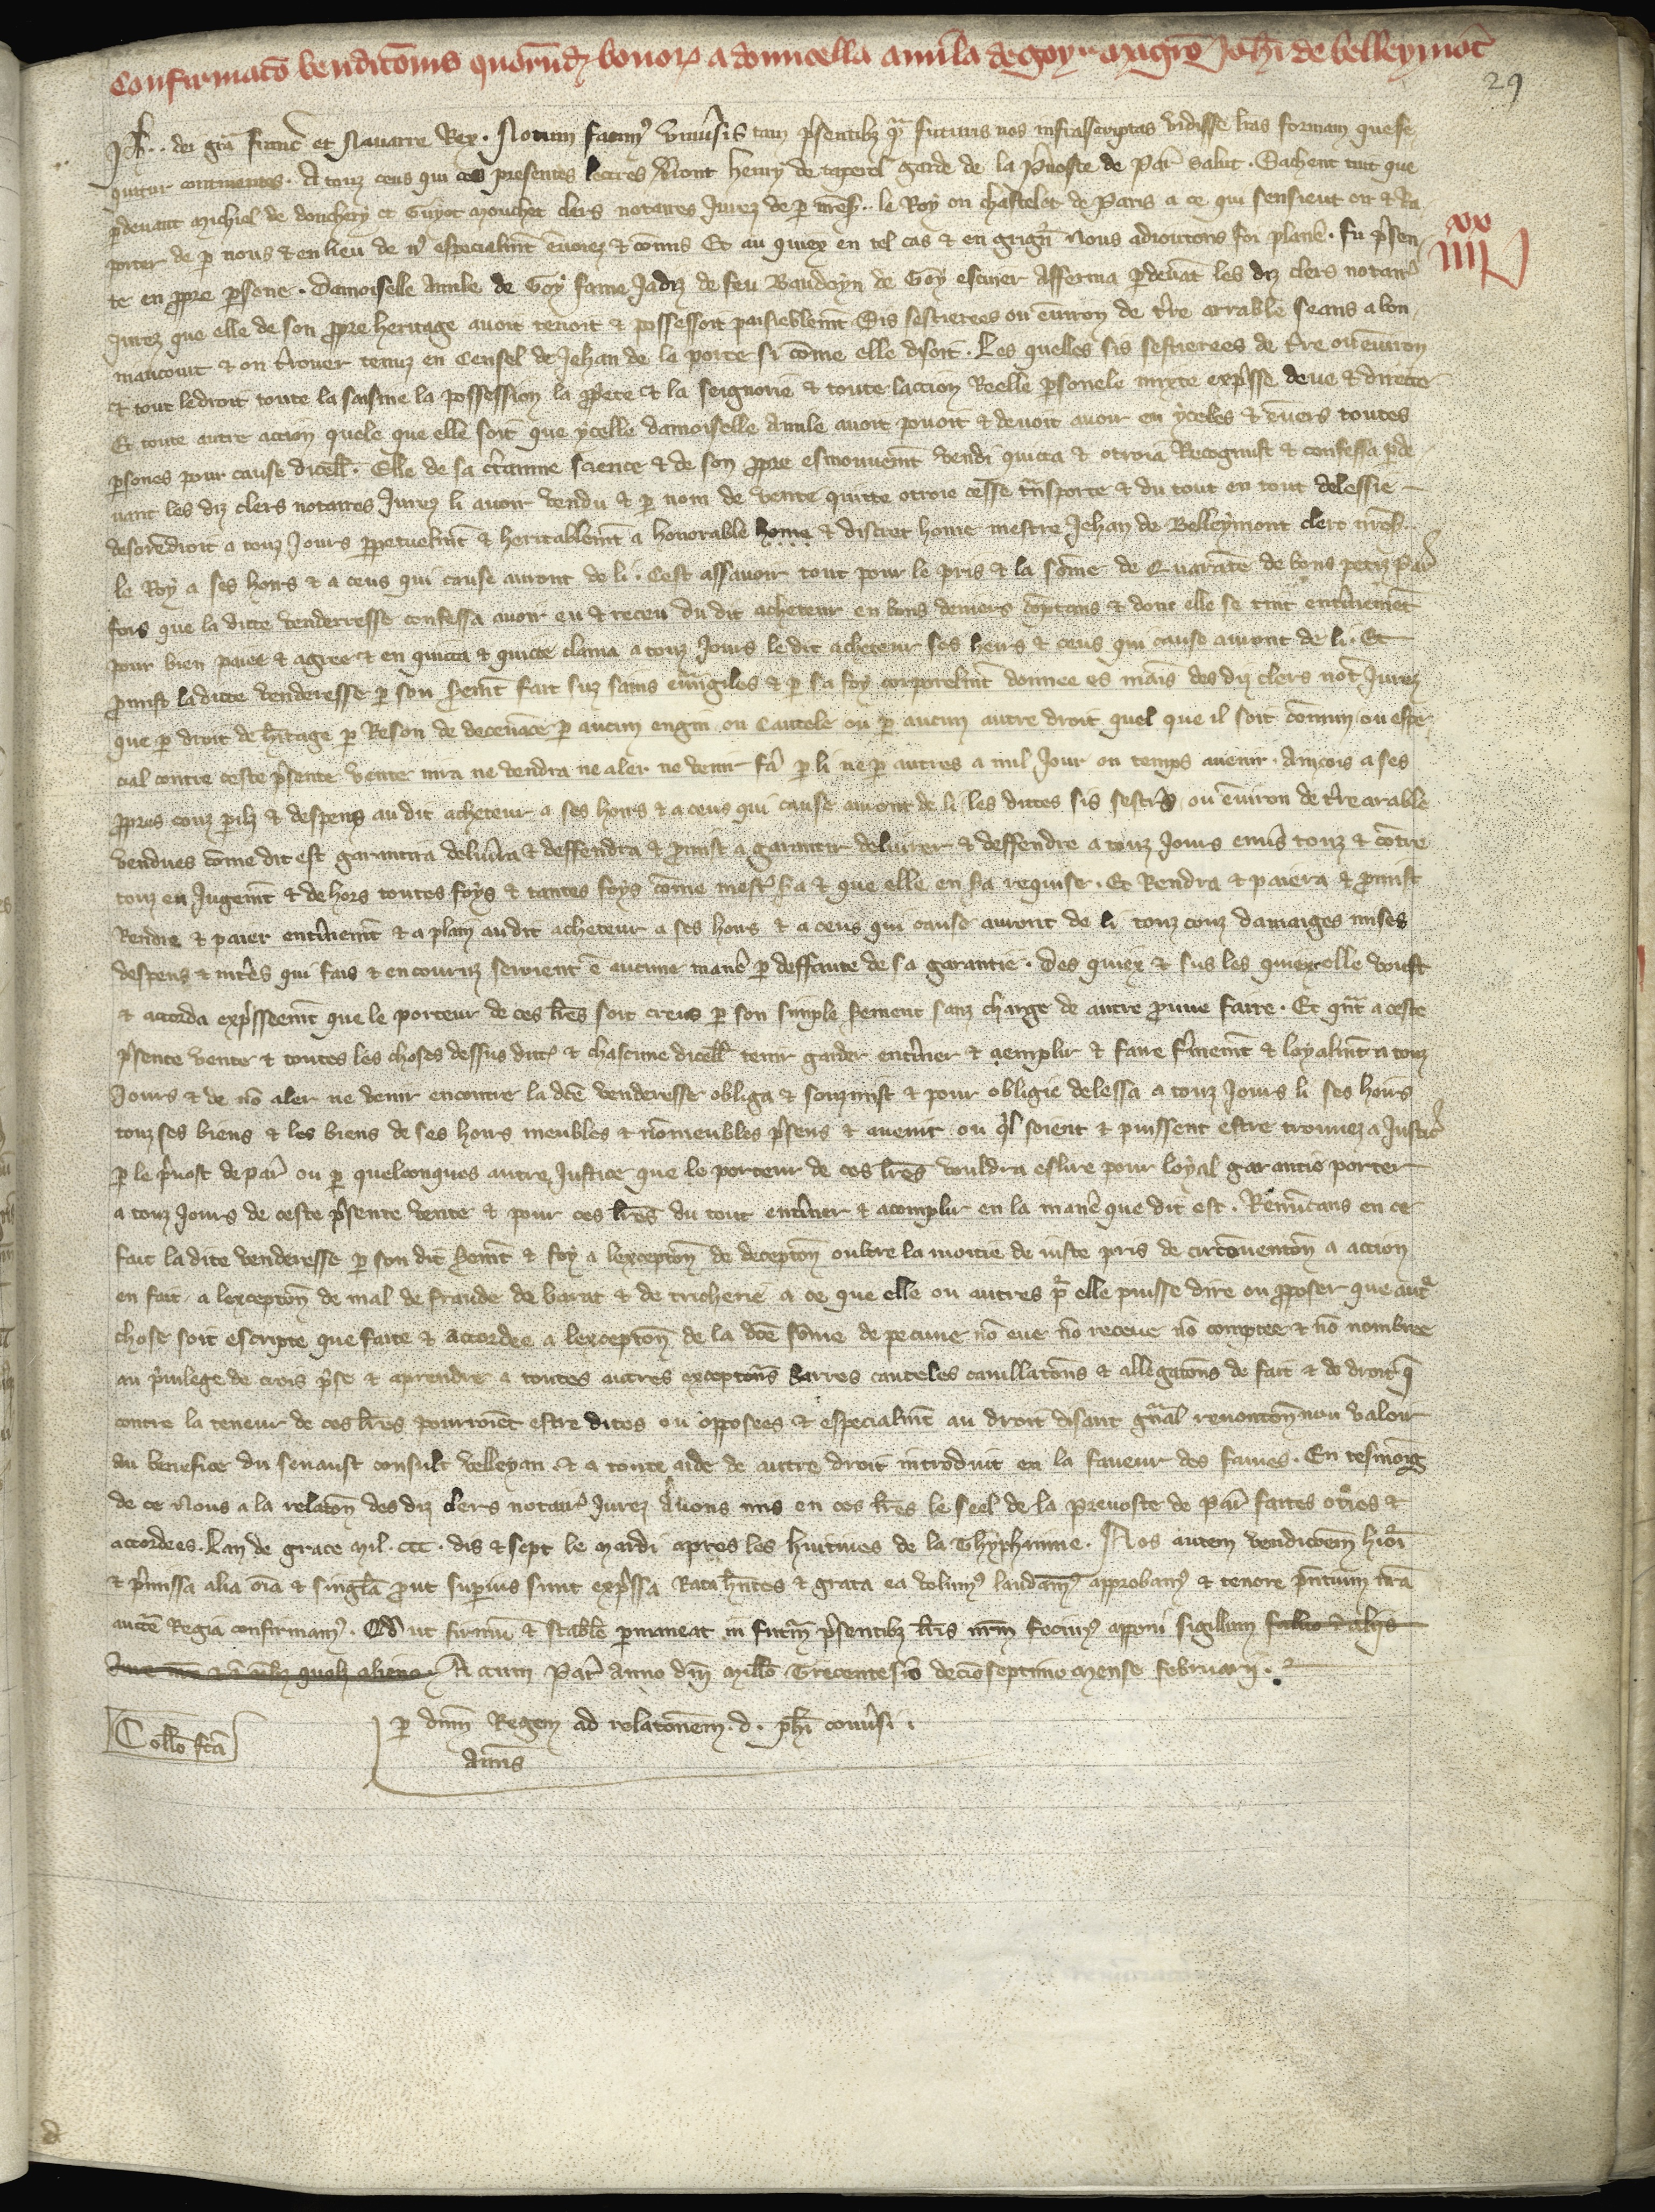 Confirmatō vendicōnis quorūdꝫ bonoꝝ a domicella amīla de goy magrō Johī de belleymōt
29
Ph̄.. dei grā Franc̄ et Nauarre Rex. Notum facimꝰ vniu̾sis tam p̃sentibꝫ qᵃ̃ futuris nos infrascriptas vidisse lr̃as formam que se
quitur continentes. A touz ceus qui ces presentes lettres v̾ront henry de taperel garde de la p̾uoste de Par̃ salut. Sachent tuit que
ꝑdeuant Michiel de donchery et Guyot Mouchet clers notaires Jurez de ꝑ nr̃es.. le Roy ou chastelet de Paris a ce qui sensieut oir & Ra
porter de ꝑ nous & en lieu de nꝰ especialmt̄ enuoiez & cōmis Et au quiex en tel cas & en grign̾ Nous adioutons foi planie. fu p̃sen
te en ꝓpre ꝑsone. Damoiselle Amile de Goy fame Jadiz de feu Baudoyn de Goy escuier Afferma ꝑdeuāt les diz clers notairꝰ
xx
iiii
Jurez que elle de son ꝓpre heritage auoit tenoit & possessoit paisieblemt̄ Sis sestierees ou enuiron de t̾re arrable seans a bon
maucourt & ou trouer tenuz en Censel de Jehan de la porte si cōme elle disoit. Les quelles sis sestierees de t̾re ou enuiron
& tout le droit toute la saisine la possession la ꝓpete & la seignorie & toute laccion Reelle ꝑsonele mixte exp̃sse deue & directe
Et toute autre action quele que elle soit que ycelle damoiselle Amile auoit pouoit & deuoit auoir en yceles & enuers toutes
ꝑsones pour cause dicell̄. Elle de sa c̾tainne science & de son ꝓpre esmouuemt̄ vendi quicta & otroia Recognust & confessa ꝑde
uant les diz clers notaires Jurez li auoir vendu & ꝑ nom de vente quitte otroie cesse tn̄sporte & du tout en tout delessie
desorēdroit a touz Jours ꝑpetuelmt̄ & heritablemt̄ a honorable home & discret home mestre Jehan de Belleymont clerc nr̃es..
le Roy a ses hoirs & a ceus qui cause auront de li. Cest assauoir tout pour le pris & la sōme de Quarāte de bons petiz par̃
fors que la dicte venderresse confessa auoir eu & receu du dit acheteur en bons deniers cōptans & dont elle se tint ent̾inemēt
pour bien paiee & agree & en quicta & quicte clama a touz Jours le dit acheteur ses heirs & ceus qui cause auront de li. Et
ꝓmist la dicte venderesse ꝑ son s̾emt̄ fait suz sains euᵃ̄ngiles & ꝑ sa foy corporelmt̄ donnee es mains des diz clers not̄ Jurez
que ꝑ droit de h̾itage ꝑ Reson de deceuāce ꝑ aucun engin ou Cautele ou ꝑ aucun autre droit quel que il soit commun ou espe
cial contre ceste p̃sente vente nira ne vendra ne aler ne venir fa̾ ꝑ li ne ꝑ autres a nul Jour ou temps auenir. Ainçois a ses
ꝓpres couz ꝑilz & despens au dit acheteur a ses hoirs & a ceus qui cause auront de li les dictes sis sestr̾s ou enuiron de t̾re arable
vendues cōme dit est garantira deliu̾ra & deffendra & ꝓmist a garantir deliurer & deffendre a touz Jours enu̾s touz & cōtre
touz en Jugemt̄ & dehors toutes foys & tantes foys cōme mest̾ s̾a & que elle en s̾a requise. Et Rendra & paiera & ꝓmist
Rendre & paier ent̾inemt̄ & a plain au dit acheteur a ses hoirs & a ceus qui cause auront de li touz couz damaiges mises
despens & int̾es qui fais & encouruz seroient ē aucune mane̾ ꝑ deffaute de sa garantie. Des quiex & sus les quiex elle voust
& accorda exp̃sseemt̄ que le porteur de ces lr̃es soit creus ꝑ son simple s̾ement sanz charge de autre prouue faire. Et qn̄t a ceste
p̃sente vente & toutes les choses dessus ditꝰ & chascune dicell̄ tenir garder ent̾iner & aemplir & faire f̾memt̄ & loyalmt̄ a touz
Jours & de nō aler ne venir encontre la dc̄e venderesse obliga & souzmist & pour obligie delessa a touz Jours li ses hoirs
touz ses biens & les biens de ses hoirs meubles & nōmeubles p̃sens & auenir ou ql̾ soient & puissent estre trouuez a Justic̾
ꝑ le p̾uost de par̃ ou ꝑ quelconques autre Justice que le porteur de ces lr̃es vouldra eslire pour loyal garantie porter
a touz Jours de ceste p̃sente vente & pour ces lr̃es du tout ent̾iner & acomplir en la mane̾ que dit est. Renūcans en ce
fait la dite venderesse ꝑ son dit s̾emt̄ & foy a lexceptōn de deceptōn oultre la moitie de iuste pris de circōuentōn a accion
en fait a lexceptōn de mal de fraude de barat & de tricherie a ce que elle ou autres ꝑ elle puisse dire ou ꝓposer que aut̾
chose soit escripte que faite & accordee a lexceptōn de la dc̄e sōme de pecune nō eue nō receue nō comptee & nō nombree
au p̾uilege de crois p̃se & aprendre a toutes autres exceptōns barres cauteles cauillatōns & allegatōns de fait & de droit q̄
contre la teneur de ces lr̃es pourroiēt estre dites ou opposees & especialmt̄ au droit disant gn̾al renontōn non valoir
au benefice du senaust consult velleyan & a toute aide de autre droit introduit en la faueur des fames. En tesmoig
de ce Nous a la relatōn des diz clers notairꝰ Jurez Auons mis en ces lr̃es le seel de la preuoste de Par̃ faites otr̾es &
accordees. Lan de grace Mil. CCC. dis & sept le mardi apres les huitiues de la Thyphainne. Nos autem vendicōem huiᵒi
& p̃missa alia oīa & singl̄a ꝓut superius sunt exp̃ssa Rata hn̄tes & grata ea volumꝰ laudamꝰ approbamꝰ & tenore p̃ntium nr̄a
auctē Regia confirmamꝰ. Qd̄ ut firmū & stabl̄e ꝑmaneat in futur̄ p̃sentibꝫ lr̄is nr̄m fecimꝰ apponi sigillum saluo ī alijs
Jure nr̄o & ī oībꝫ quolꝫ alieno. Actum Par̃ Anno dn̄i Mill̄o Trecentesīo deciōseptimo Mense februarij.
Coll̄o fc̄a
ꝑ dn̄m Regem ad relatōnem. d. ph̄i conu̾si.
Amīs
d